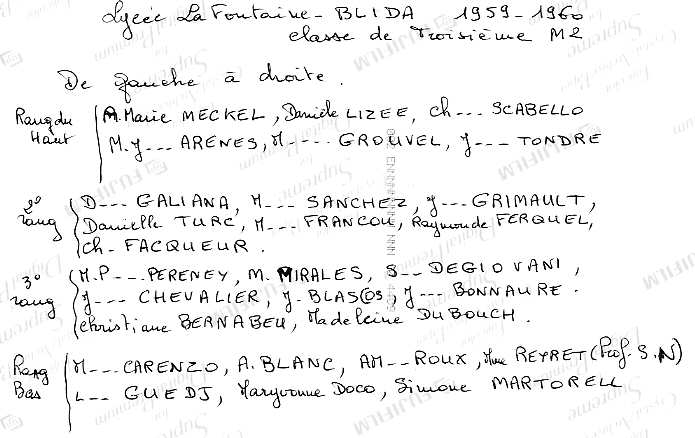 Lycée La Fontaine - BLIDA 1959-1960
classe de Troisième M2
De gauche à droite.
Rang du Haut
A. Marie MECKEL, Danièle LIZEE, Ch--- SCABELLO
M.J--- ARENES, M---- GROUVEL, J--- TONDRE
2° rang
D--- GALIANA, M--- SANCHEZ, J--- GRIMAULT,
Danielle TURC, M--- FRANCOU, Raymonde FERQUEL,
Ch- FACQUEUR.
3° rang
M.P--- PERENEY, M. MIRALES, S-- DEGIOVANI,
J--- CHEVALIER, J. BLASCOS, J--- BONNAURE.
Christiane BERNABEU, Madeleine DUBOUCH.
Rang Bas
M--- CARENZO, A. BLANC, AM-- ROUX, Mme REYRET (Prof. S.N)
L--- GUEDJ, Maryvonne DOCO, Simone MARTORELL
FUJIFILM